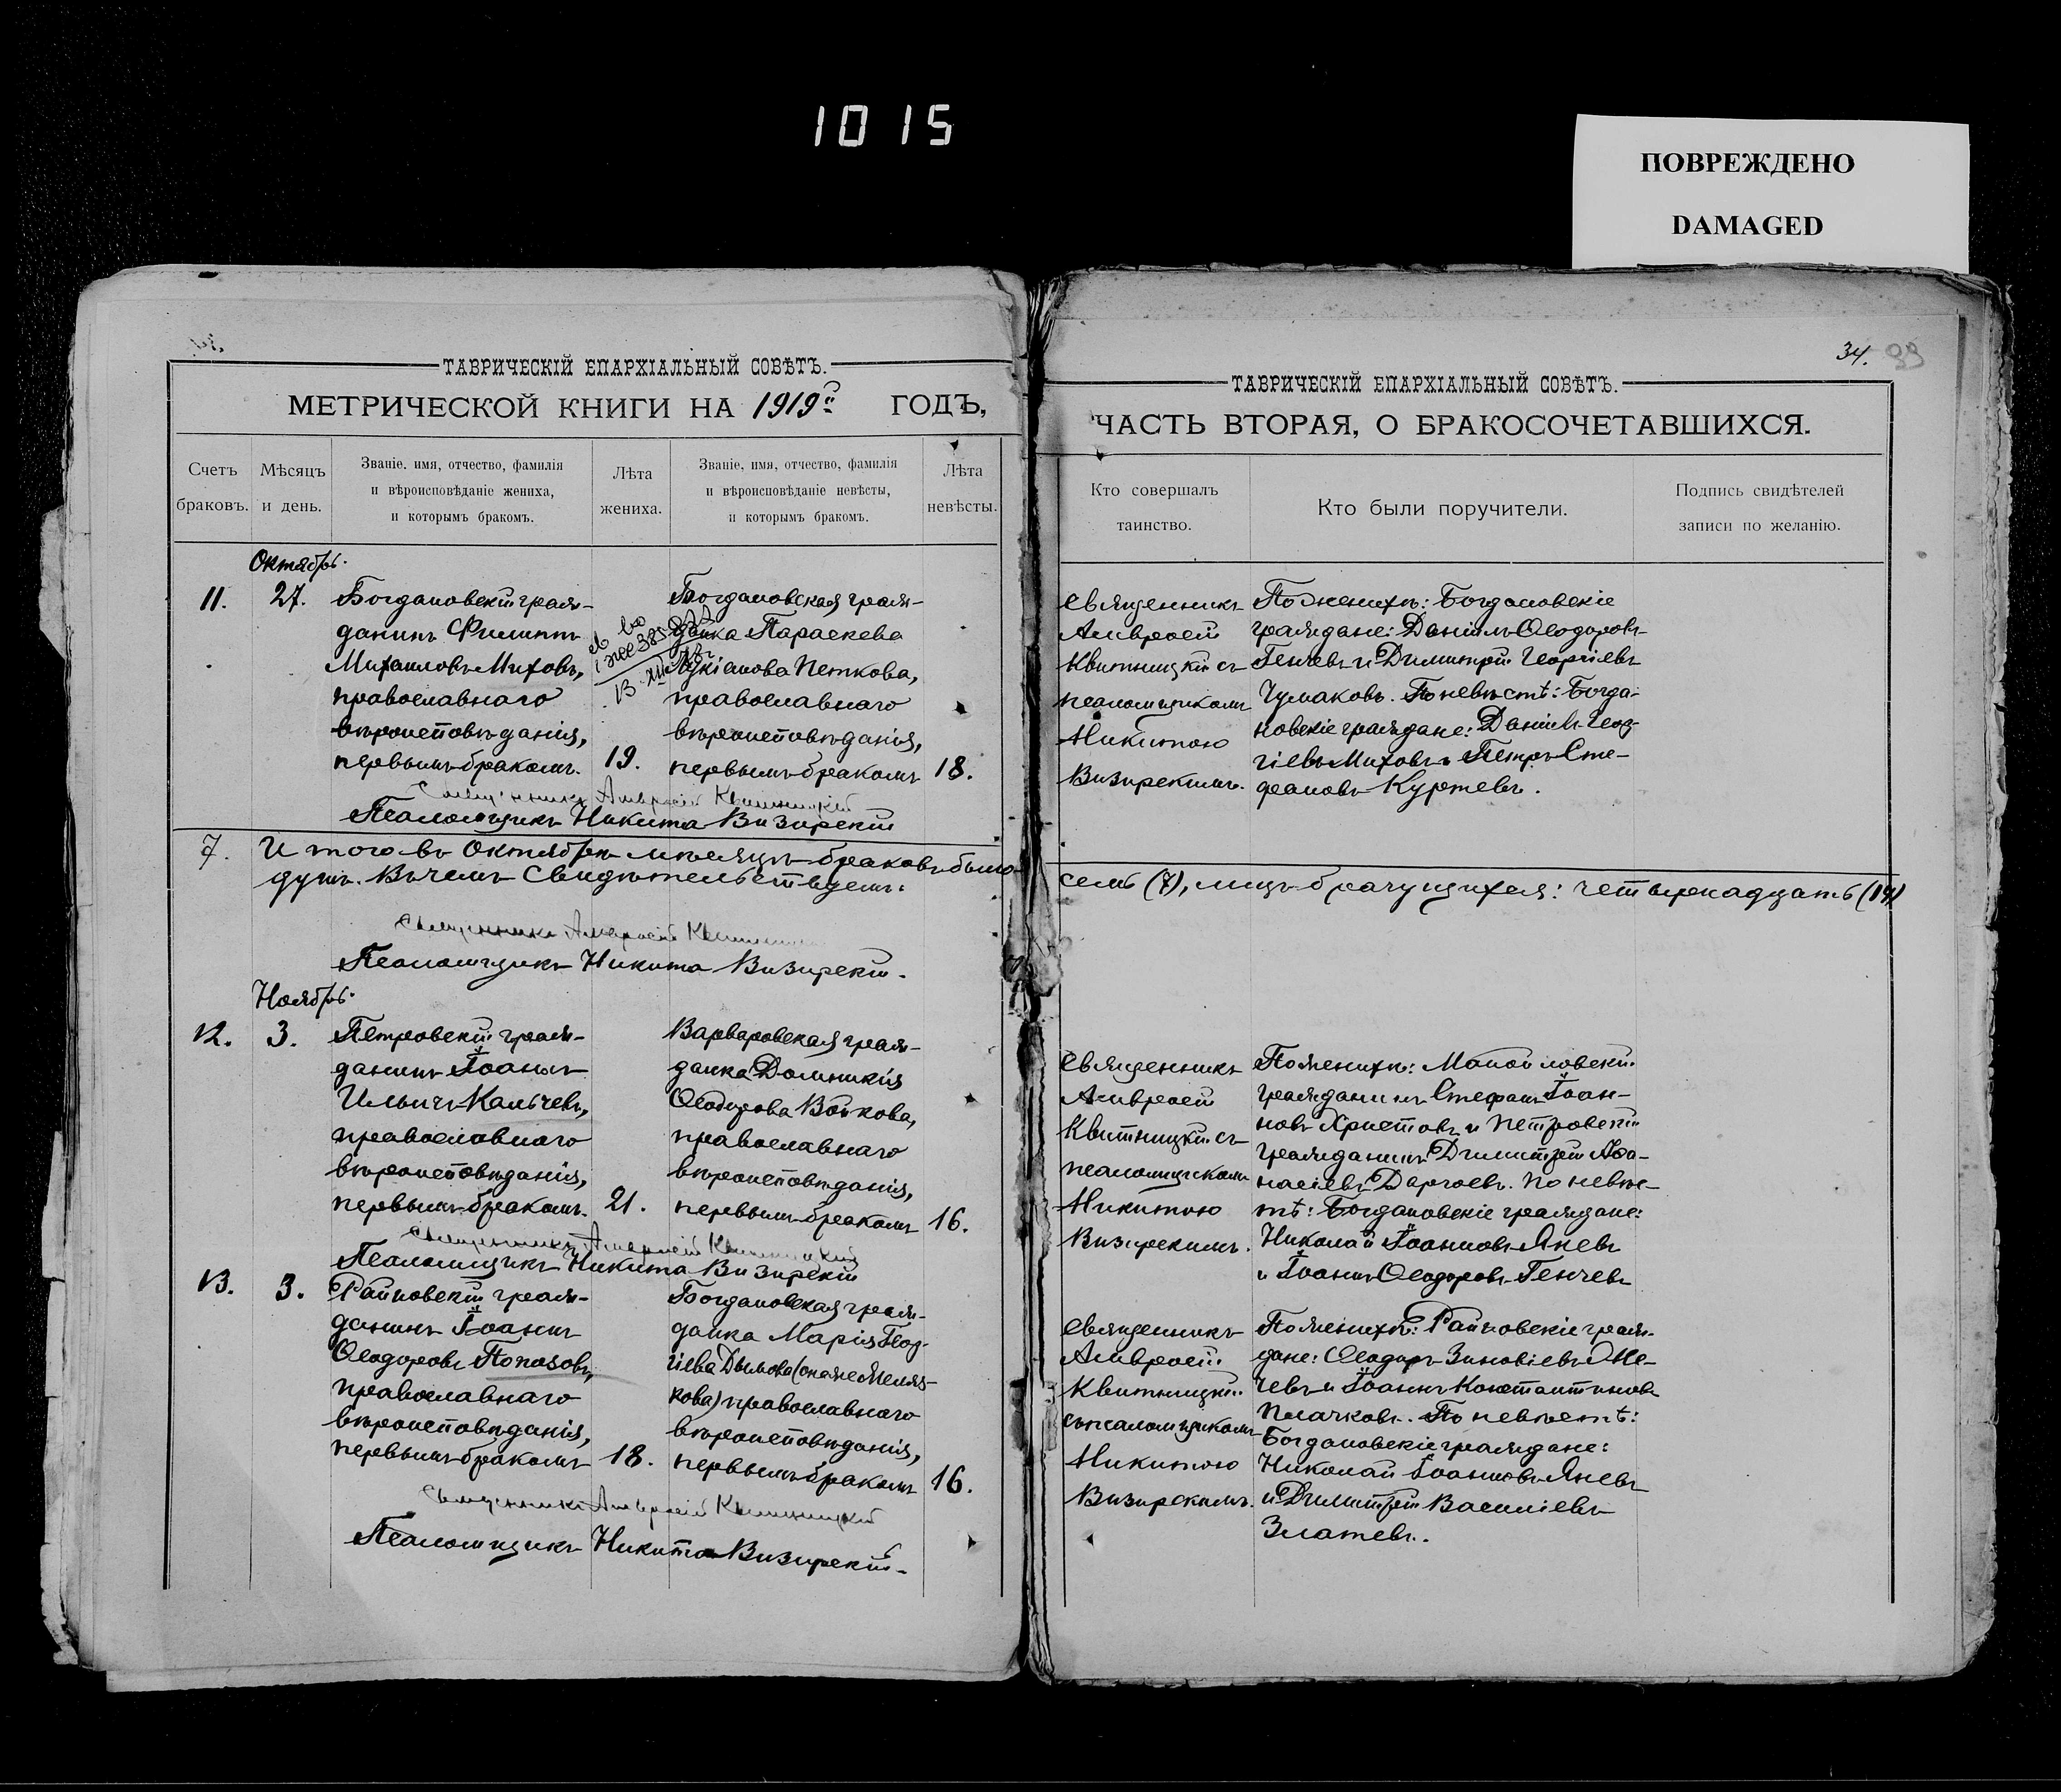 1015
ПОВРЕЖДЕНО
DAMAGED
ТАВРИЧЕСКІЙ ЕПАРХІАЛЬНЫЙ СОВѢТЪ.
МЕТРИЧЕСКОЙ КНИГИ НА 1919й ГОДЪ,
Счетъ
браковъ.
Мѣсяцъ
и день.
Званіе, имя, отчество, фамилія
и вѣроисповѣданіе жениха,
и которымъ бракомъ.
Лѣта
жениха.
Званіе, имя, отчество, фамилія
и вѣроисповѣданіе невѣсты,
и которымъ бракомъ.
Лѣта
невѣсты.
Октябрь.
11.
27.
Богдановскій граж-
данинъ Филиппъ
Михаиловъ Митовъ,
православнаго
вѣроисповѣданія,
первымъ бракомъ.
19.
Богдановская граж-
данка Параскева
Лукіанова Петкова,
православнаго
вѣроисповѣданія,
первымъ бракомъ
18.
Священникъ Амвросій Квитницкій
Псаломщикъ Никита Визирскій
7.
Итого въ Октябрѣ мѣсяцѣ браковъ было
душъ. Въ чемъ свидѣтельствуемъ:
Священникъ Амвросій
Псаломщикъ Никита Визирскій.
Ноябрь.
12.
3.
Петровскій граж-
данинъ Іоаннъ
Ильичъ Кальчевъ,
православнаго
вѣроисповѣданія,
первымъ бракомъ.
21.
Варваровская граж-
данка Домникія
Ѳеодорова Войкова,
православнаго
вѣроисповѣданія,
первымъ бракомъ
16.
Священникъ Амвросій Квитницкій
Псаломщикъ Никита Визирскій
13.
3.
Райновскій граж-
данинъ Іоаннъ
Ѳеодоровъ Попазовъ,
православнаго
вѣроисповѣданія,
первымъ бракомъ
18.
Богдановская граж-
данка Марія Геор-
гіева Дымова (она же
кова) православнаго
вѣроисповѣданія,
первымъ бракомъ
16.
Священникъ Амвросій Квитницкій
Псаломщикъ Никита Визирскій.
34.
33
ТАВРИЧЕСКІЙ ЕПАРХІАЛЬНЫЙ СОВѢТЪ.
ЧАСТЬ ВТОРАЯ, О БРАКОСОЧЕТАВШИХСЯ.
Кто совершалъ
таинство.
Кто были поручители.
Подпись свидѣтелей
записи по желанію.
Священникъ
Амвросій
Квитницкій съ
псаломщикомъ
Никитою
Визирскимъ.
По женихѣ: Богдановскіе
граждане: Даніилъ Ѳеодоровъ
Генчевъ и Димитрій Георгіевъ
Чумаковъ. По невѣстѣ: Богда-
новскіе граждане: Даніилъ Геор-
гіевъ Митовъ и Петръ Сте-
фановъ Куртевъ.
семь (7), лицъ брачущихся: четырнадцать (14)
Священникъ
Амвросій
Квитницкій съ
псаломщикомъ
Никитою
Визирскимъ.
По женихѣ: Манойловскій
гражданинъ Стефанъ Іоан-
новъ Христовъ и Петровскій
гражданинъ Димитрій Аѳа-
насіевъ Даргоевъ. По невѣс-
тѣ: Богдановскіе граждане:
Николай Іоанновъ Яневъ
и Іоаннъ Ѳеодоровъ Генчевъ
Священникъ
Амвросій
Квитницкій
съ псаломщикомъ
Никитою
Визирскимъ.
По женихѣ: Райновскіе граж-
дане: Ѳеодоръ Зиновіевъ
чевъ и Іоаннъ Константиновъ
Плачковъ. По невѣстѣ:
Богдановскіе граждане:
Николай Іоанновъ Яневъ
и Димитрій Василіевъ
Златевъ.